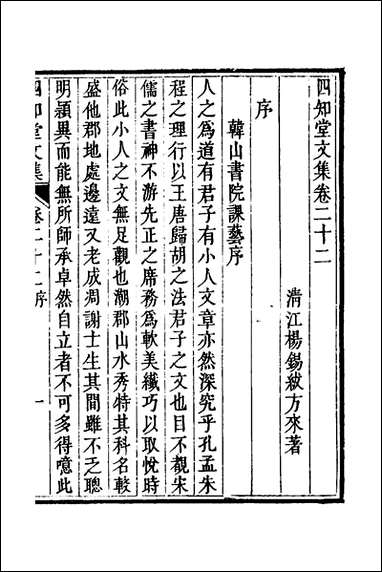 四知堂文集卷二十二
清江楊錫紱方來著
序
韓山書院課藝序
人之爲道有君子有小人文章亦然深究乎孔孟朱
程之理行以王唐歸胡之法君子之文也目不觀宋
儒之書神不游先正之席務爲軟美纖巧以取悅時
俗此小人之文無足觀也潮郡山水秀特其科名較
盛他郡地處邊遠又老成凋謝士生其間雖不乏聰
明穎異而能無所師承卓然自立者不可多得噫此
四知堂文集 卷二十二序 一